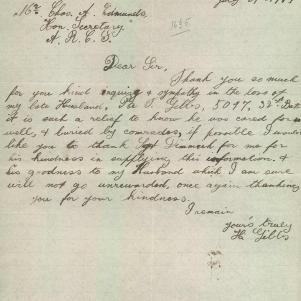 Mr. Chas. A. Edmunds
Hon. Secretary
A. R. C. S.
1635
Dear Sir,
Thank you so much
for you kind enquiry & sympathy in the loss of
my late Husband, Pte T. Gibbs, 5097, 32nd Batt
it is such a relief to know he was cared for so
well, & buried by comrades, if possible I would
like you to thank for me for
his kindness in supplying this information. &
his goodness to my Husband which I am sure
will not go unrewarded, once again thanking
you for your kindness.
I remain
yours truly
H. Gibbs